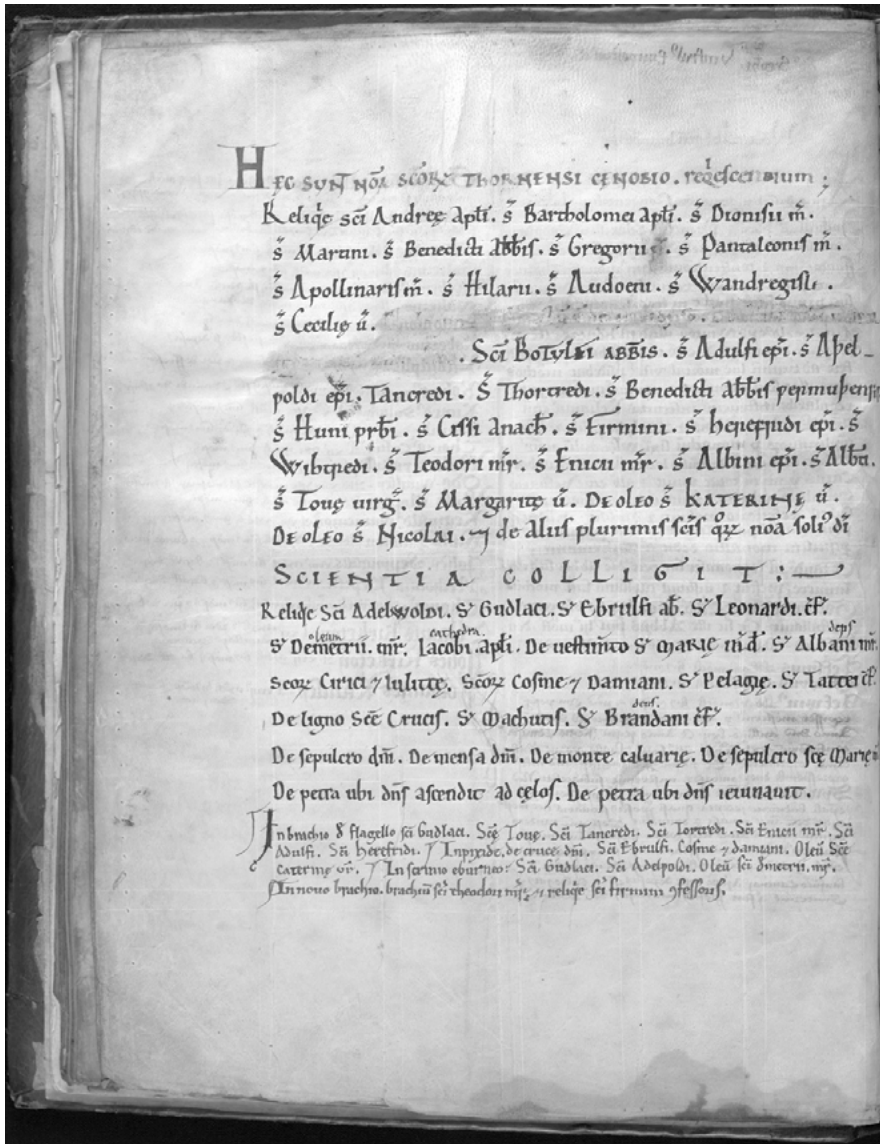 HEC SUNT NOĀ SCORꝜ THORNENSI CĘNOBIO. reqͥescentium;
Reliqͥę sc̄i Andreę apl̄i. s̄ Bartholomei apl̄i. s̄ Dionisii m̄.
s̄ Martini. s̄ Benedicti abb̄is. s̄ Gregorii. s̄ Pantaleonis m̄.
s̄ Apollinaris m̄. s̄ Hilarii. s̄ Audoeni. s̄ Wandregisli.
s̄ Cecilię ū.
. Sc̄i BOTULFI ABB̄IS. s̄ Adulfi ep̄i. s̄ Aþel_
poldi ep̄i. Tancredi. S̄ Thortredi. s̄ Benedicti ab̄bis
s̄ Huni prb̄i. s̄ Cissi anach̄. s̄ Firmini. s̄ herefridi ep̄i. s̄
Wihtredi. s̄ Teodori m̄r. s̄ Enicii m̄r. s̄ Albini ep̄i. s̄
s̄ Touę uirḡ. s̄ Margaritę ū. DE OLEO s̄ KATERINE ū.
DE OLEO s̄ NICOLAI. ⁊ de aliis plurimis sc̄is qͦꝝ noā soliꝰ dī
SCIENTIA COLLIGIT:
Reliqͥe Sc̄i Adelwoldi. S' Gudlaci. S' Ebrulfi ab̄. S' Leonardi. c̄f'.
oleum cathedra. dens
S' Demetrii. mr̄. Iacobi. apl̄i. De uestim̄to S' MARIE S' Albani mr̄.
Scoꝝ Cirici ⁊ Iulittę. Sc̄oꝝ Cosme ⁊ Damiani. S' Pelagię. S' c̄f'.
dens.
De ligno Sc̄e Crucis. S' Machutis. S' Brandani c̄f'.
De sepulcro dn̄i. De mensa dn̄i. De monte caluarię. De sepulcro sc̄ę Marię
De petra ubi dn̄s ascendit ad cęlos. De petra ubi dn̄s ieiunauit.
In brachio flagello sc̄i Gudlaci. Sc̄ę Touę. Sc̄i Tancredi. Sc̄i Torcredi. Sc̄i Enicii mr̄. Sc̄i
Adulfi. Sc̄i herefridi. In pixide. de cruce dn̄i. Sc̄i Ebrulfi. Cosme ⁊ damiani. Oleū Sc̄e
Caterine uir̄. In scrinio eburneo: Sc̄i Gudlaci. Sc̄i Adelpoldi. Oleū sc̄i dm̄etrii. mr̄.
In nouo brachio. brachiū sc̄i theodori mr̄is ⁊ reliqͥe sc̄i firmini ꝯfessoris.